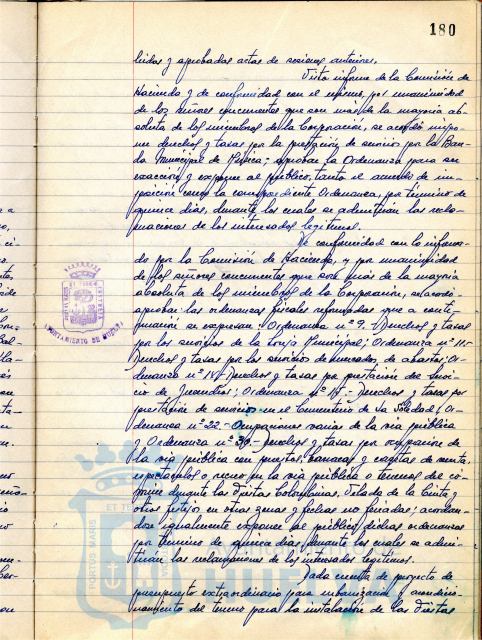 180
leidas y aprobadas actas de sesiones anteriores.
Visto informe de la Comisión de
Hacienda y de conformidad con el mismo, por unanimidad
de los señores concurrentes que son más de la mayoría ab-
soluta de los miembros de la Corporación, se acordó impo-
ner derechos y tasas por la prestación de servicio por la Ban-
da Municipal de Música; aprobar la Ordenanza para su
exacción y exponer al público, tanto el acuerdo de im-
posición como la correspondiente Ordenanza, por término de
quince días, durante los cuales se admitirán las recla-
maciones de los interesados legítimos.
De conformidad con lo informa-
do por la Comisión de Hacienda, y por unanimidad
de los señores concurrentes que son más de la mayoría
absoluta de los miembros de la Corporación, se acordó
aprobar las ordenanzas fiscales reformadas que a conti-
nuación se expresan: Ordenanza nº 9. Derechos y tasas
por los servicios de la Lonja Municipal; Ordenanza nº 11.
Derechos y tasas por los servicios de mercados de abastos; Or-
denanza nº 14.- Derechos y tasas por prestación del Servi-
cio de Incendios; Ordenanza nº - Derechos y tasas por
prestación de servicios en el Cementerio de La Soledad; Or-
denanza nº 22.- Ocupaciones varias de la vía pública
y Ordenanza nº 36.- Derechos y tasas por ocupación de
la vía pública con puestos, barracas y casetas de venta,
espectáculos o recreo en la vía pública o terrenos del co-
mún durante las Fiestas Colombinas, Velada de la Cinta y
otros festejos en otras zonas y fechas no feriadas; acordán-
dose igualmente exponer al público dichas ordenanzas
por término de quince días, durante los cuales se admi-
tirán las reclamaciones de los interesados legítimos.
Dada cuenta de proyecto de
presupuesto extraordinario para urbanización y acondicio-
namiento del terreno para la instalación de las Fiestas
AYUNTAMIENTO DE HUELVA
PORTUS MARIS